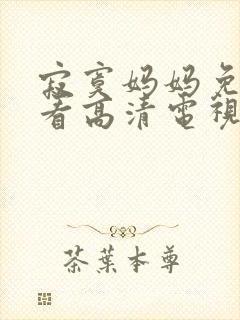 寂寞妈妈免
看高清電視
茶葉本尊